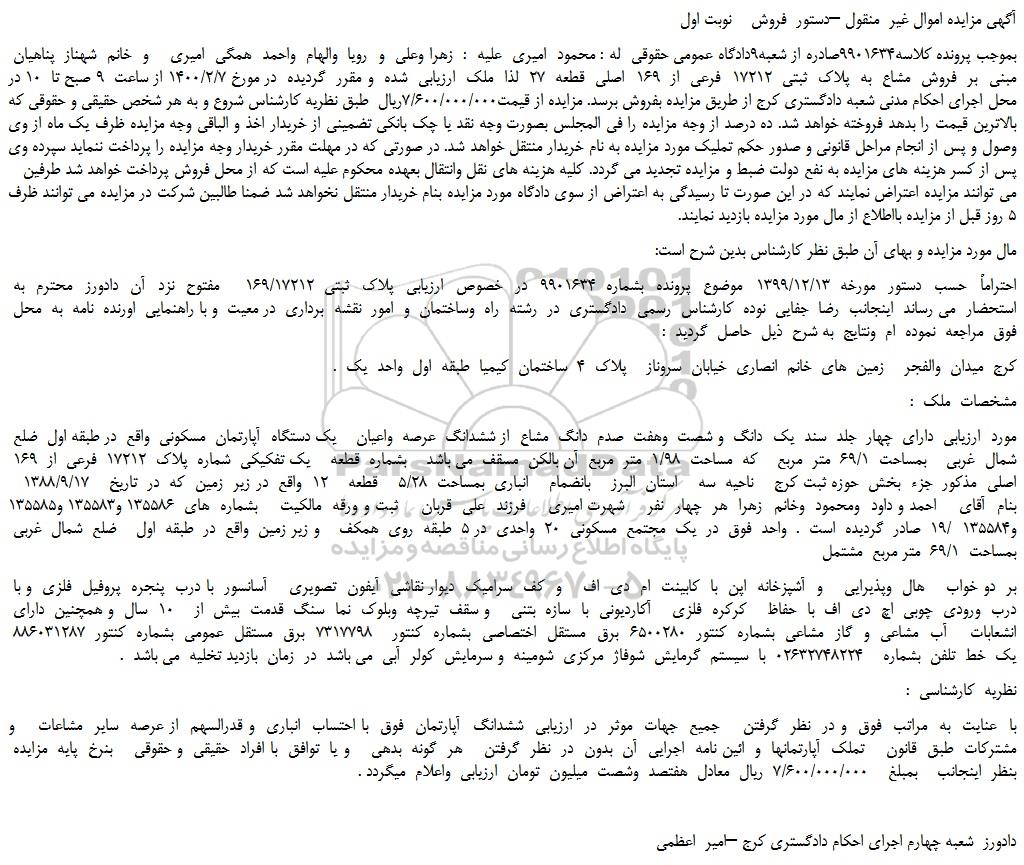 آگهی مزایده اموال غیر منقول –دستور فروش نوبت اول
بموجب پرونده کلاسه۹۹۰۱۶۳۴صادره از شعبه۹دادگاه عمومی حقوقی له : محمود امیری علیه : زهرا وعلی و رویا والهام واحمد همگی امیری و خانم شهناز پناهیان
مبنی بر فروش مشاع به پلاک ثبتی ۱۷۲۱۲ فرعی از ۱۶۹ اصلی قطعه ۲۷ لذا ملک ارزیابی شده و مقرر گردیده در مورخ ۱۴۰۰/۲/۷ از ساعت ۹ صبح تا ۱۰ در
محل اجرای احکام مدنی شعبه دادگستری کرج از طریق مزایده بفروش برسد. مزایده از قیمت۷/۶۰۰/۰۰۰/۰۰۰ریال طبق نظریه کارشناس شروع و به هر شخص حقیقی و حقوقی که
بالاترین قیمت را بدهد فروخته خواهد شد. ده درصد از وجه مزایده را فی المجلس بصورت وجه نقد یا چک بانکی تضمینی از خریدار اخذ و الباقی وجه مزایده ظرف یک ماه از وی
وصول و پس از انجام مراحل قانونی و صدور حکم تملیک مورد مزایده به نام خریدار منتقل خواهد شد. در صورتی که در مهلت مقرر خریدار وجه مزایده را پرداخت ننماید سپرده وی
پس از کسر هزینه های مزایده به نفع دولت ضبط و مزایده تجدید می گردد. کلیه هزینه های نقل وانتقال بعهده محکوم علیه است که از محل فروش پرداخت خواهد شد طرفین
می توانند مزایده اعتراض نمایند که در این صورت تا رسیدگی به اعتراض از سوی دادگاه مورد مزایده بنام خریدار منتقل نخواهد شد ضمنا طالبین شرکت در مزایده می توانند ظرف
۵ روز قبل از مزایده بااطلاع از مال مورد مزایده بازدید نمایند.
مال مورد مزایده و بهای آن طبق نظر کارشناس بدین شرح است:
احتراماً حسب دستور مورخه ۱۳۹۹/۱۲/۱۳ موضوع پرونده بشماره ۹۹۰۱۶۳۴ در خصوص ارزیابی پلاک ثبتی ۱۶۹/۱۷۲۱۲ مفتوح نزد آن دادورز محترم به
استحضار می رساند اینجانب رضا جفایی نوده کارشناس رسمی دادگستری در رشته راه وساختمان و امور نقشه برداری در معیت و با راهنمایی اورنده نامه به محل
فوق مراجعه نموده ام ونتایج به شرح ذیل حاصل گردید :
کرج میدان والفجر زمین های خانم انصاری خیابان سروناز پلاک ۴ ساختمان کیمیا طبقه اول واحد یک .
مشخصات ملک :
مورد ارزیابی دارای چهار جلد سند یک دانگ و شصت وهفت صدم دانگ مشاع از ششدانگ عرصه واعیان یک دستگاه آپارتمان مسکونی واقع در طبقه اول ضلع
شمال غربی بمساحت ۶۹/۱ متر مربع که مساحت ۱/۹۸ متر مربع آن بالکن مسقف می باشد بشماره قطعه یک تفکیکی شماره پلاک ۱۷۲۱۲ فرعی از ۱۶۹
اصلی مذکور جزء بخش حوزه ثبت کرج ناحیه سه استان البرز بانضمام انباری بمساحت ۵/۲۸ قطعه ۱۲ واقع در زیر زمین که در تاریخ ۱۳۸۸/۹/۱۷
بنام آقای احمد و داود ومحمود وخانم زهرا هر چهار نفر شهرت امیری فرزند علی قربان ثبت و ورقه مالکیت بشماره های ۱۳۵۵۸۶ و۱۳۵۵۸۳ و۱۳۵۵۸۵
و۱۳۵۵۸۴ /۱۹ صادر گردیده است . واحد فوق در یک مجتمع مسکونی ۲۰ واحدی در ۵ طبقه روی همکف و زیر زمین واقع در طبقه اول ضلع شمال غربی
بمساحت ۶۹/۱ متر مربع مشتمل
بر دو خواب هال وپذیرایی و آشپزخانه اپن با کابینت ام دی اف و کف سرامیک دیوار نقاشی آیفون تصویری آسانسور با درب پنجره پروفیل فلزی و با
درب ورودی چوبی اچ دی اف با حفاظ کرکره فلزی آکاردیونی با سازه بتنی و سقف تیرچه وبلوک نما سنگ قدمت بیش از ۱۰ سال و همچنین دارای
انشعابات آب مشاعی و گاز مشاعی بشماره کنتور ۶۵۰۰۲۸۰ برق مستقل اختصاصی بشماره کنتور ۷۳۱۷۷۹۸ برق مستقل عمومی بشماره کنتور ۸۸۶۰۳۱۲۸۷
یک خط تلفن بشماره ۰۲۶۳۲۷۴۸۲۲۴ با سیستم گرمایش شوفاژ مرکزی شومینه و سرمایش کولر آبی می باشد در زمان بازدید تخلیه می باشد .
نظریه کارشناسی :
با عنایت به مراتب فوق و در نظر گرفتن جمیع جهات موثر در ارزیابی ششدانگ آپارتمان فوق با احتساب انباری و قدرالسهم از عرصه سایر مشاعات و
مشترکات طبق قانون تملک آپارتمانها و ائین نامه اجرایی آن بدون در نظر گرفتن هر گونه بدهی و یا توافق با افراد حقیقی و حقوقی بنرخ پایه مزایده
بنظر اینجانب بمبلغ ۷/۶۰۰/۰۰۰/۰۰۰ ریال معادل هفتصد وشصت میلیون تومان ارزیابی واعلام میگردد .
دادورز شعبه چهارم اجرای احکام دادگستری کرج –امیر اعظمی
ParsNamadData
پایگاه اطلاع رسانی مناقصه و مزایده
۰۲۱-۸۸۳۴۹۶۷۰-۵